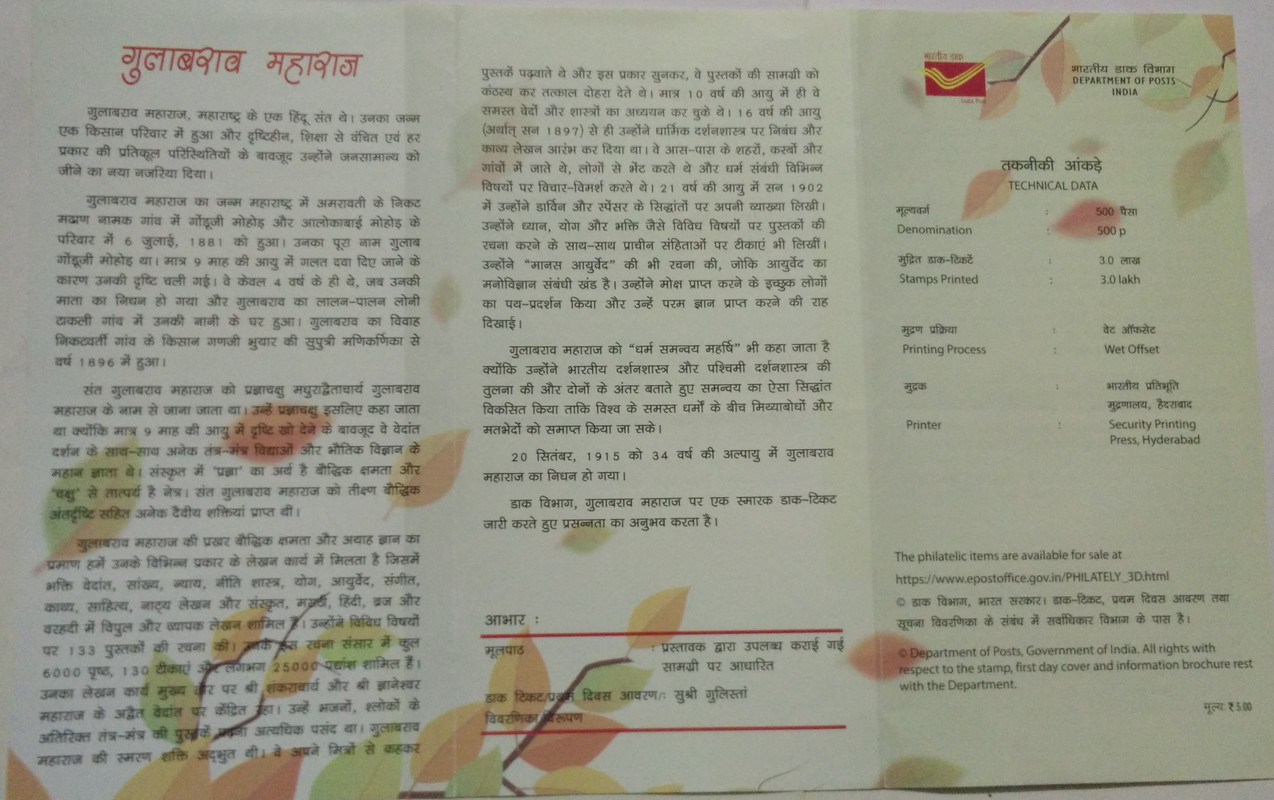 गुलाबराव महाराज
गुलाबराव महाराज, महाराष्ट्र के एक हिंदू संत थे। उनका जन्म
एक किसान परिवार में हुआ और दृष्टिहीन, शिक्षा से वंचित एवं हर
प्रकार की प्रतिकूल परिस्थितियों के बावजूद उन्होंने जनसामान्य को
जीने का नया नजरिया दिया।
गुलाबराव महाराज का जन्म महाराष्ट्र में अमरावती के निकट
मढ़ाण नामक गांव में गोंडूजी मोहोड़ और आलोकाबाई मोहोड़ के
परिवार में 6 जुलाई, 1881 को हुआ। उनका पूरा नाम गुलाब
गोंडूजी मोहोड़ था। मात्र 9 माह की आयु में गलत दवा दिए जाने के
कारण उनकी दृष्टि चली गई। वे केवल 4 वर्ष के ही थे, जब उनकी
माता का निधन हो गया और गुलाबराव का लालन-पालन लोनी
टाकली गांव में उनकी नानी के घर हुआ। गुलाबराव का विवाह
निकटवर्ती गांव के किसान गणजी भुयार की सुपुत्री मणिकर्णिका से
वर्ष 1896 में हुआ।
संत गुलाबराव महाराज को प्रज्ञाचक्षु मधुराद्वैताचार्य गुलाबराव
महाराज के नाम से जाना जाता था। उन्हें प्रज्ञाचक्षु इसलिए कहा जाता
था क्योंकि मात्र 9 माह की आयु में दृष्टि खो देने के बावजूद वे वेदांत
दर्शन के साथ-साथ अनेक तंत्र-मंत्र विद्याओं और भौतिक विज्ञान के
महान ज्ञाता थे। संस्कृत में 'प्रज्ञा' का अर्थ है बौद्धिक क्षमता और
'चक्षु' से तात्पर्य है नेत्र। संत गुलाबराव महाराज को तीक्ष्ण बौद्धिक
अंतर्दृष्टि सहित अनेक दैवीय शक्तियां प्राप्त थीं।
गुलाबराव महाराज की प्रखर बौद्धिक क्षमता और अथाह ज्ञान का
प्रमाण हमें उनके विभिन्न प्रकार के लेखन कार्य में मिलता है जिसमें
भक्ति वेदांत, सांख्य, न्याय, नीति शास्त्र, योग, आयुर्वेद, संगीत,
काव्य, साहित्य, नाट्य लेखन और संस्कृत, मराठी, हिंदी, ब्रज और
वरहदी में विपुल और व्यापक लेखन शामिल है। उन्होंने विविध विषयों
पर 133 पुस्तकों की रचना की। उनके इस रचना संसार में कुल
6000 पृष्ठ, 130 टीकाएं और लगभग 25000 पद्यांश शामिल हैं।
उनका लेखन कार्य मुख्य तौर पर श्री शंकराचार्य और श्री ज्ञानेश्वर
महाराज के अद्वैत वेदांत पर केंद्रित रहा। उन्हें भजनों, श्लोकों के
अतिरिक्त तंत्र-मंत्र की पुस्तकें पढ़ना अत्यधिक पसंद था। गुलाबराव
महाराज की स्मरण शक्ति अद्भुत थी। वे अपने मित्रों से कहकर
पुस्तकें पढ़वाते थे और इस प्रकार सुनकर, वे पुस्तकों की सामग्री को
कंठस्थ कर तत्काल दोहरा देते थे। मात्र 10 वर्ष की आयु में ही वे
समस्त वेदों और शास्त्रों का अध्ययन कर चुके थे। 16 वर्ष की आयु
(अर्थात् सन 1897) से ही उन्होंने धार्मिक दर्शनशास्त्र पर निबंध और
काव्य लेखन आरंभ कर दिया था। वे आस-पास के शहरों, कस्बों और
गांवों में जाते थे, लोगों से भेंट करते थे और धर्म संबंधी विभिन्न
विषयों पर विचार-विमर्श करते थे। 21 वर्ष की आयु में सन 1902
में उन्होंने डार्विन और स्पेंसर के सिद्धांतों पर अपनी व्याख्या लिखी।
उन्होंने ध्यान, योग और भक्ति जैसे विविध विषयों पर पुस्तकों की
रचना करने के साथ-साथ प्राचीन संहिताओं पर टीकाएं भी लिखीं।
उन्होंने "मानस आयुर्वेद" की भी रचना की, जोकि आयुर्वेद का
मनोविज्ञान संबंधी खंड है। उन्होंने मोक्ष प्राप्त करने के इच्छुक लोगों
का पथ-प्रदर्शन किया और उन्हें परम ज्ञान प्राप्त करने की राह
दिखाई।
गुलाबराव महाराज को "धर्म समन्वय महर्षि" भी कहा जाता है
क्योंकि उन्होंने भारतीय दर्शनशास्त्र और पश्चिमी दर्शनशास्त्र की
तुलना की और दोनों के अंतर बताते हुए समन्वय का ऐसा सिद्धांत
विकसित किया ताकि विश्व के समस्त धर्मों के बीच मिथ्याबोधों और
मतभेदों को समाप्त किया जा सके।
20 सितंबर, 1915 को 34 वर्ष की अल्पायु में गुलाबराव
महाराज का निधन हो गया।
डाक विभाग, गुलाबराव महाराज पर एक स्मारक डाक-टिकट
जारी करते हुए प्रसन्नता का अनुभव करता है।
आभार :
मूलपाठ : प्रस्तावक द्वारा उपलब्ध कराई गई
सामग्री पर आधारित
डाक टिकट/प्रथम दिवस आवरण/: सुश्री गुलिस्तां
विवरणिका/विरूपण
भारतीय डाक
India Post
भारतीय डाक विभाग
DEPARTMENT OF POSTS
INDIA
तकनीकी आंकड़े
TECHNICAL DATA
मूल्यवर्ग : 500 पैसा
Denomination : 500 p
मुद्रित डाक-टिकटें : 3.0 लाख
Stamps Printed : 3.0 lakh
मुद्रण प्रक्रिया : वेट ऑफसेट
Printing Process : Wet Offset
मुद्रक : भारतीय प्रतिभूति
मुद्रणालय, हैदराबाद
Printer : Security Printing
Press, Hyderabad
The philatelic items are available for sale at
https://www.epostoffice.gov.in/PHILATELY_3D.html
© डाक विभाग, भारत सरकार। डाक-टिकट, प्रथम दिवस आवरण तथा
सूचना विवरणिका के संबंध में सर्वाधिकार विभाग के पास है।
© Department of Posts, Government of India. All rights with
respect to the stamp, first day cover and information brochure rest
with the Department.
मूल्य: ₹ 5.00